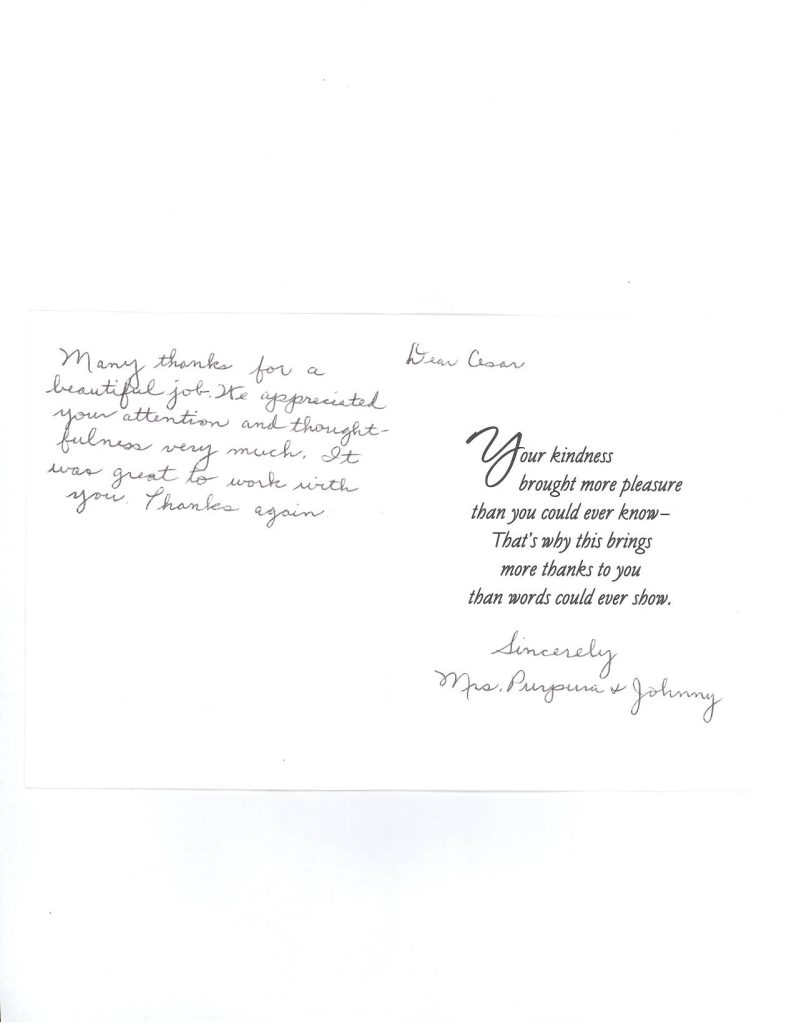 Many thanks for a
beautiful job. We appreciated
your attention and thought-
fulness very much. It
was great to work with
you. Thanks again
Dear Cesar
Your kindness
brought more pleasure
than you could ever know–
That's why this brings
more thanks to you
than words could ever show.
Sincerely
Mrs. Purpura & Johnny